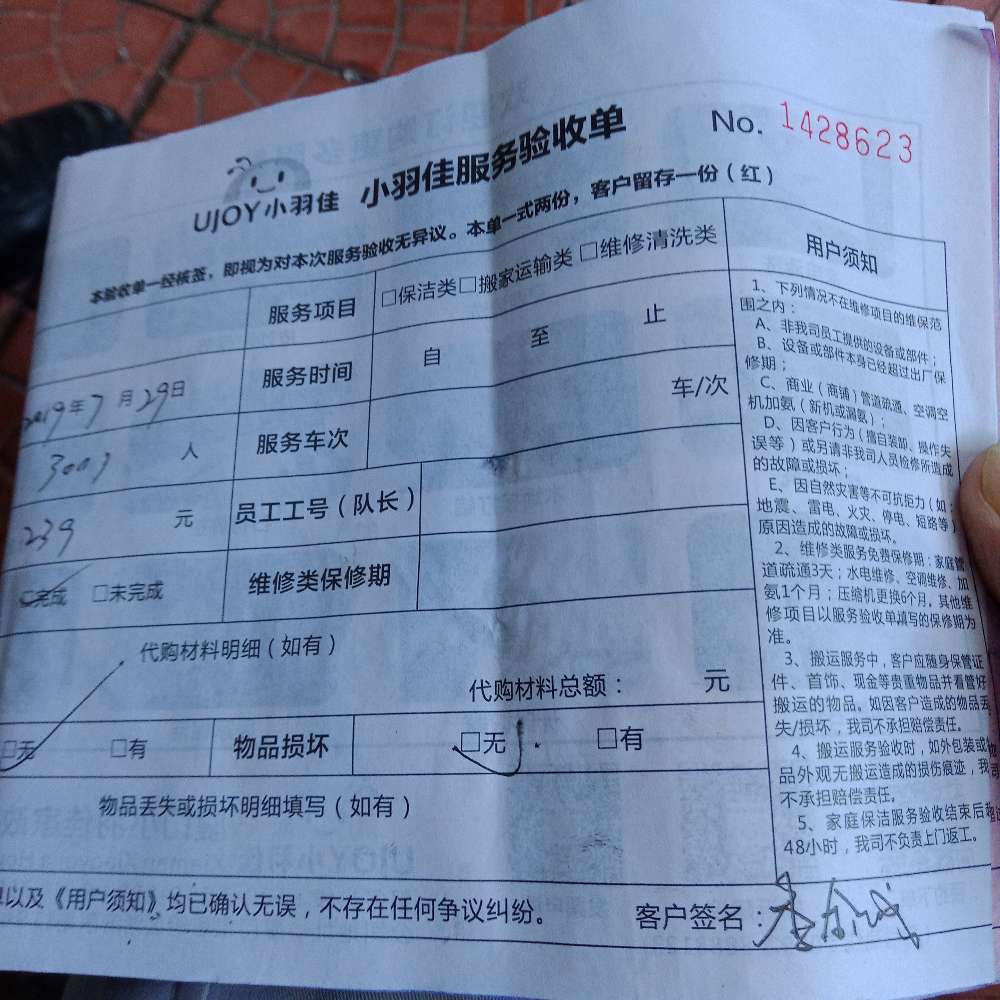 No. 1428623
UJOY小羽佳 小羽佳服务验收单
本验收单一经核签，即视为对本次服务验收无异议。本单一式两份，客户留存一份（红）
服务项目 □保洁类□搬家运输类 □维修清洗类
2019年7月29日 服务时间 自 至 止
3003 人 服务车次 车/次
239 元 员工工号（队长）
□完成 □未完成 维修类保修期
代购材料明细（如有）
代购材料总额： 元
□无 □有 物品损坏 □无 □有
物品丢失或损坏明细填写（如有）
以及《用户须知》均已确认无误，不存在任何争议纠纷。 客户签名：
用户须知
1、下列情况不在维修项目的维保范
围之内：
A、非我司员工提供的设备或部件；
B、设备或部件本身已经超过出厂保
修期；
C、商业（商铺）管道疏通、空调空
机加氨（新机或漏氨）；
D、因客户行为（擅自装卸、操作失
误等）或另请非我司人员检修所造成
的故障或损坏；
E、因自然灾害等不可抗拒力（如：
地震、雷电、火灾、停电、短路等）
原因造成的故障或损坏。
2、维修类服务免费保修期：家庭管
道疏通3天；水电维修、空调维修、加
氨1个月；压缩机更换6个月。其他维
修项目以服务验收单填写的保修期为
准。
3、搬运服务中，客户应随身保管证
件、首饰、现金等贵重物品并看管好
搬运的物品。如因客户造成的物品丢
失/损坏，我司不承担赔偿责任。
4、搬运服务验收时，如外包装或物
品外观无搬运造成的损伤痕迹，我司
不承担赔偿责任。
5、家庭保洁服务验收结束后超
48小时，我司不负责上门返工。